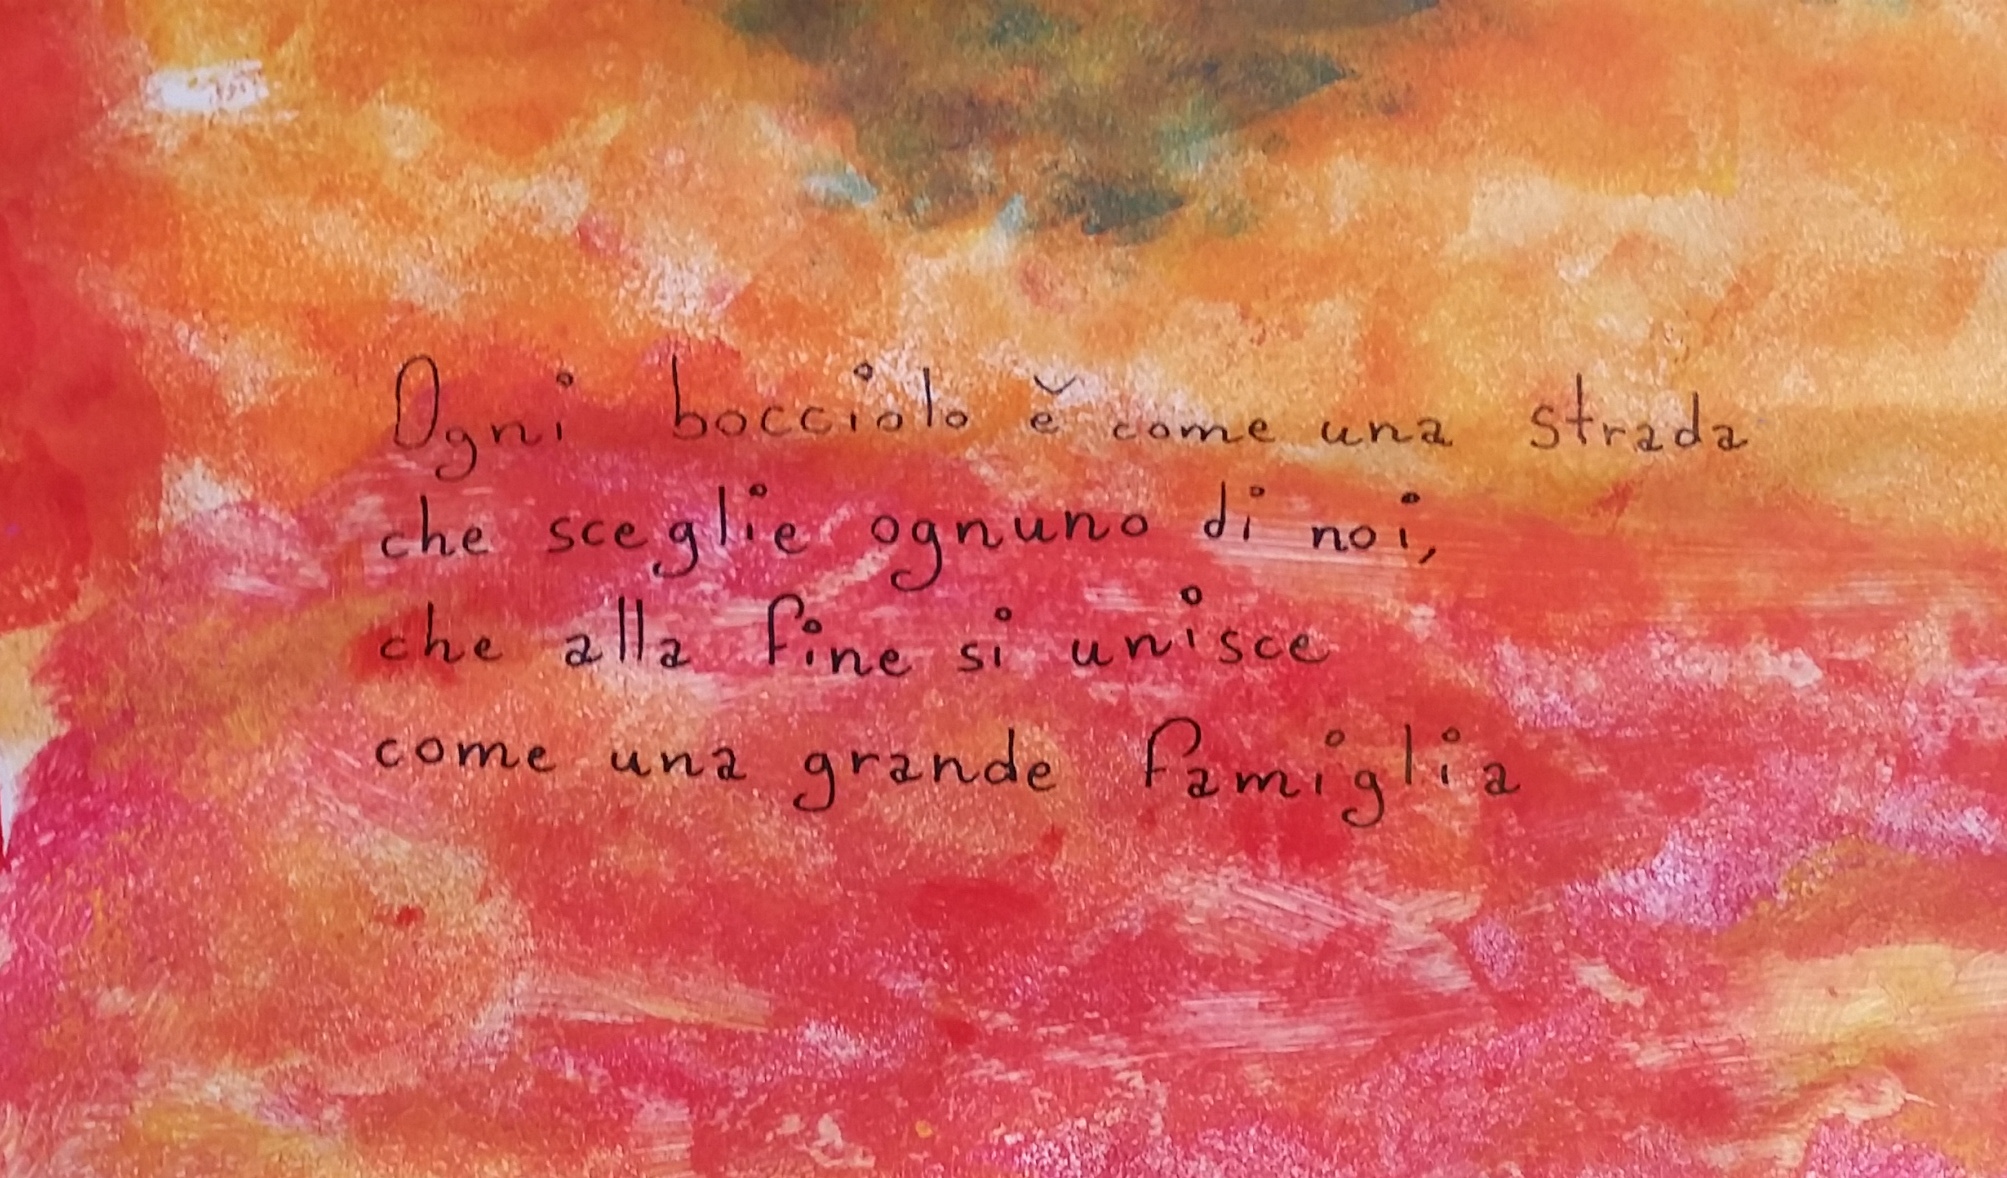 Ogni bocciolo è come una strada
che sceglie ognuno di noi,
che alla fine si unisce
come una grande famiglia